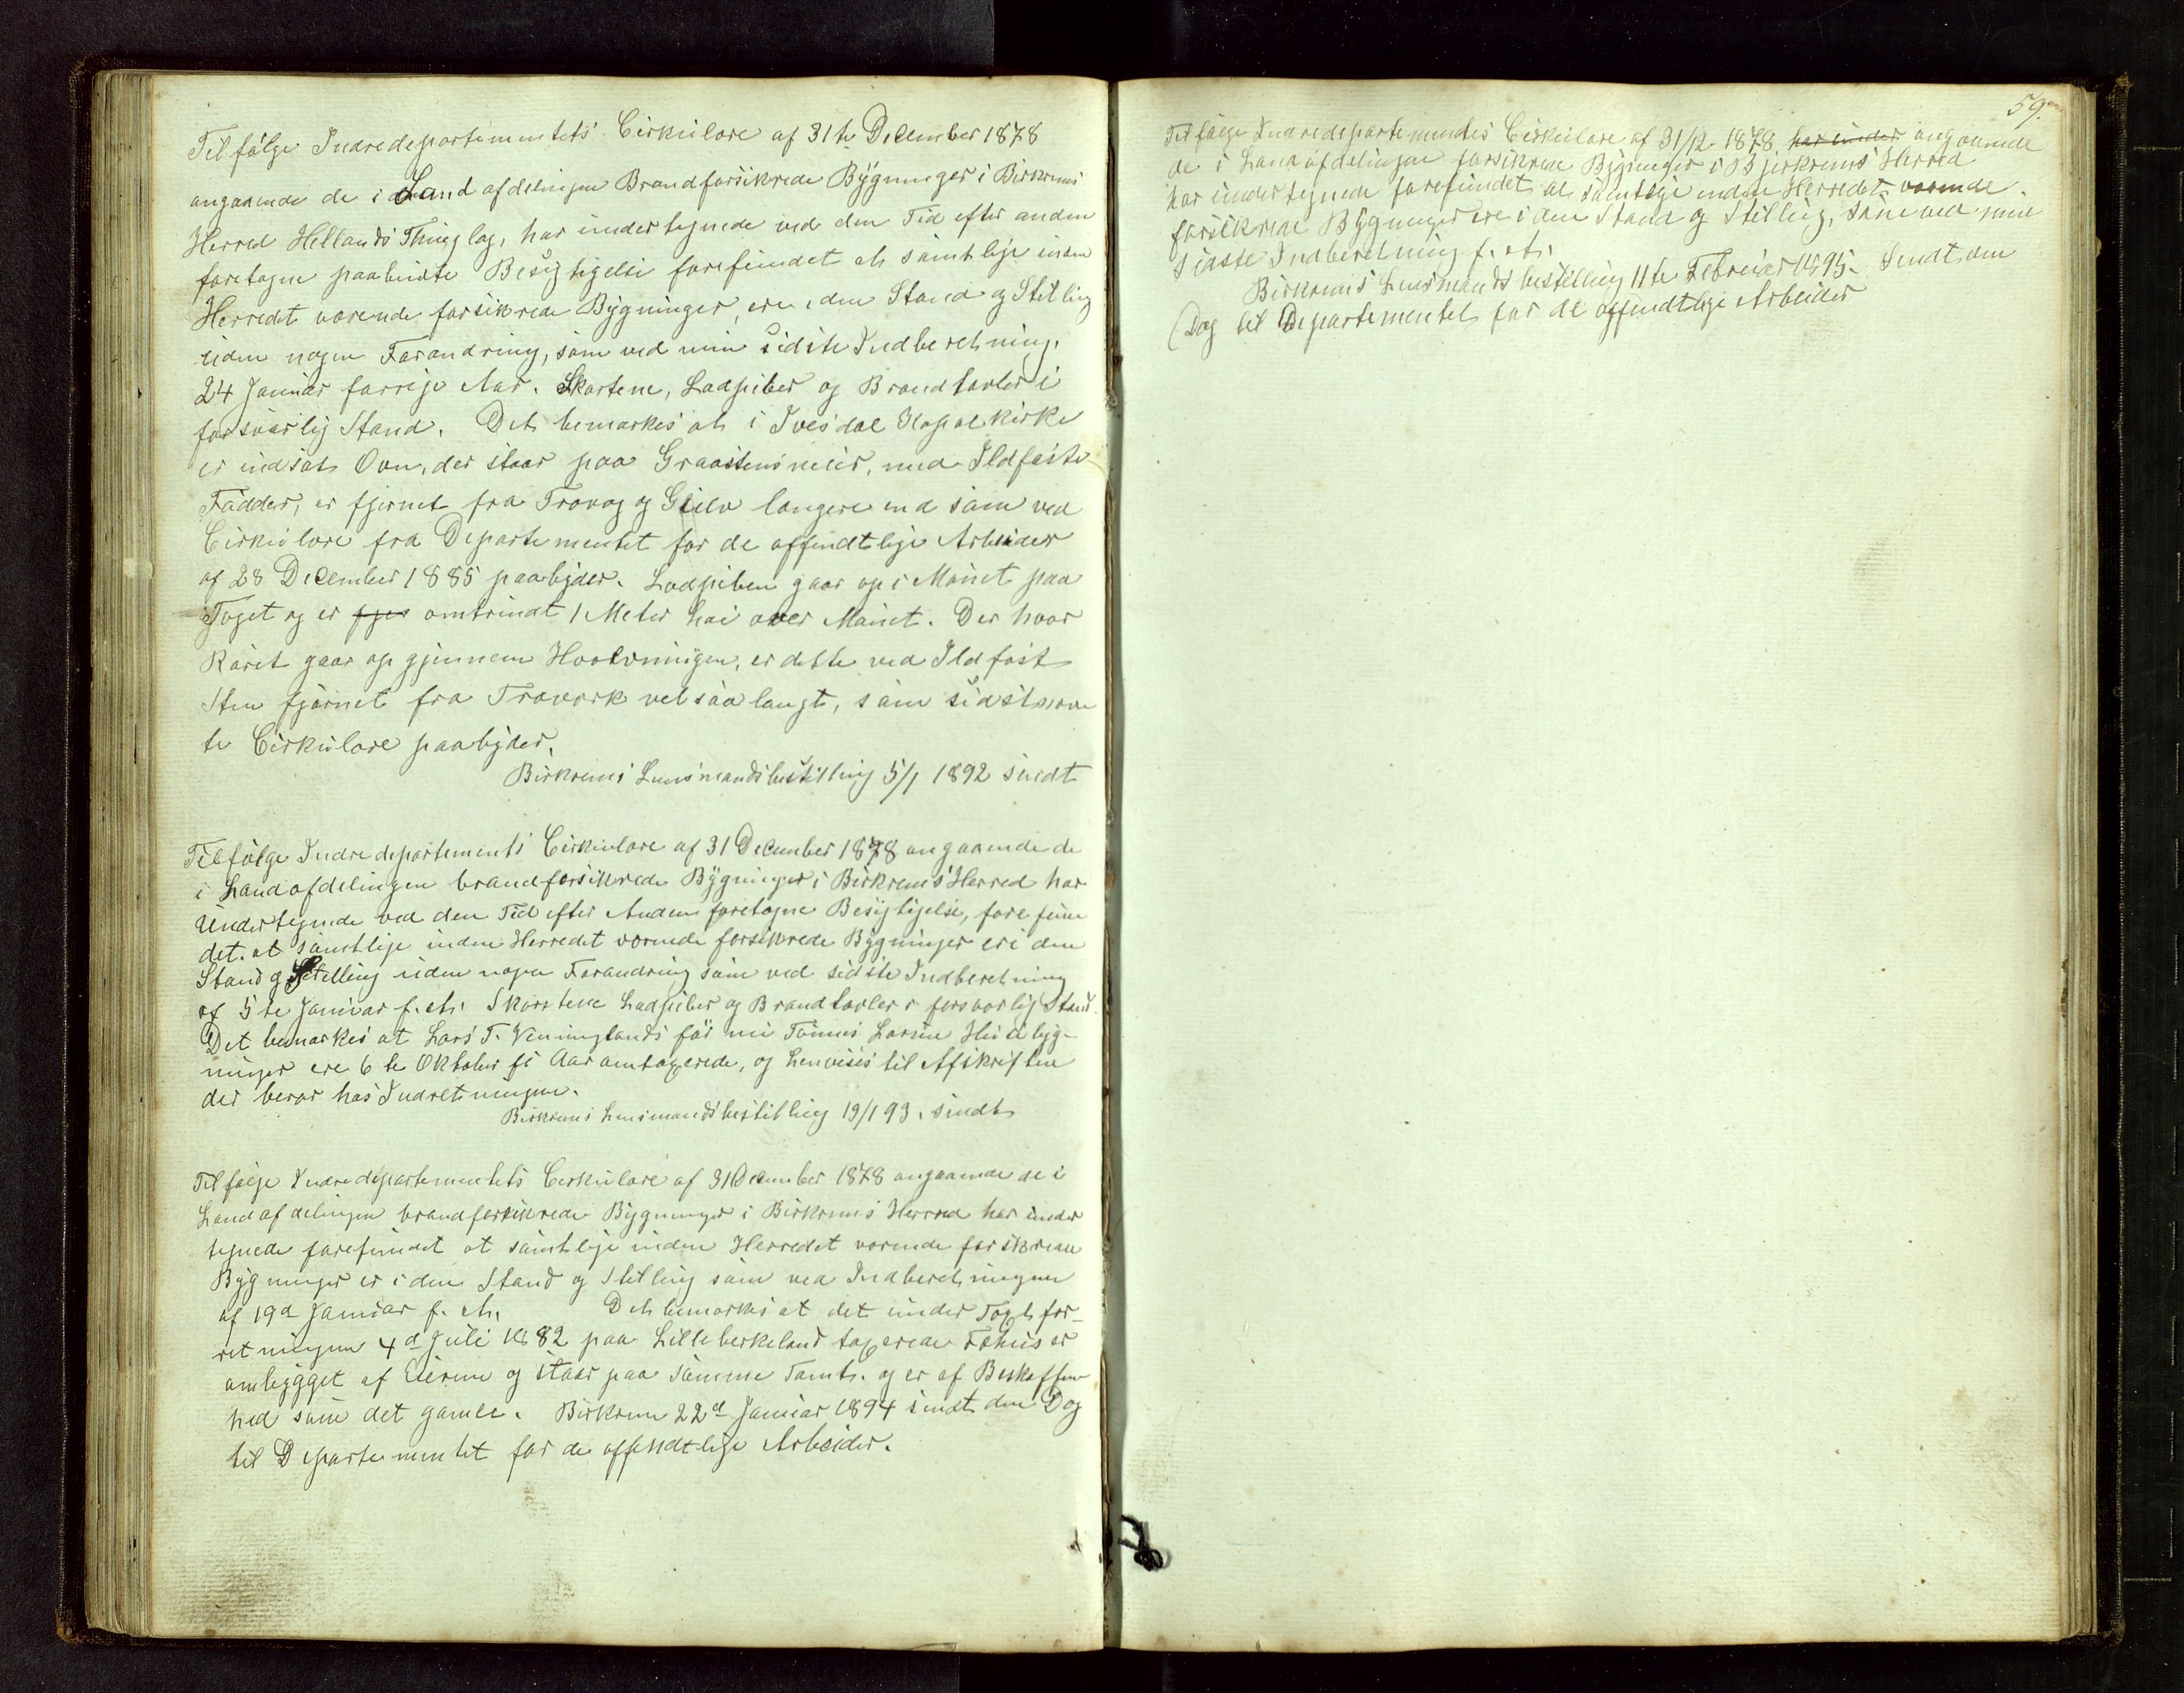 Tilfølge Indredepartementets Cirkulære af 31te December 1878
angaaende de i Landafdelingen Brandforsikrede Bygninger i Birkrems
Herred Hellands Thinglag, har undertegnede ved den Tid efter anden
foretagne paabudte Besigtigelse forefundet at samtlige inden
Herredet værende forsikrede Bygninger, ere i den Stand og Stilling
uden nogen Forandring, som ved min sidste Indberetning.
24 Januar forrige Aar. Skorstene, Ladpiber og Brandtavler i
forsvarlig Stand. Det bemærkes at i Ivesdal Kapelkirke
er indsat Ovn, der staar paa Graastensmuer, med Ildfaste
Fødder, er fjernet fra Trævæg og Gulv længere end som ved
Cirkulære fra Departementet for de offendtlige Arbeider
af 28 December 1885 paabyder. Ladpiben gaar op i Mønet paa
Taget og er omtrindt 1 Meter høi over Mønet. Der hvor
Røret gaar op gjennem Hvælvningen, er dette ved Ildfast
Sten fjærnet fra Træværk vel saa langt, som sidstnævn
te Cirkulære paabyder.
Birkrems Lensmandsbestilling 5/1 1892 sendt
Tilfølge Indredepartements Cirkulære af 31 December 1878 angaaende de
i Landafdelingen brandforsikrede Bygninger i Birkrems Herred har
Undertegnede ved den Tid efter Anden foretagne Besigtigelse, forefun
det. at samtlige inden Herredet værende forsikrede Bygninger er i den
Stand og Stilling uden nogen Forandring som ved sidste Indberetning
af 5te Januar f. A. Skorstene Ladpiber og Brandtavler i forsvarlig Stand
Det bemærkes at Lars T. Veninglands før nu Tønnes Larsen Husebyg-
ninger ere 6te Oktober f. Aar omtaxerede, og henvises til Afskriften
der beror hos Indretningen.
Birkrems Lensmandsbestilling 19/1 93. sendt
Tilfølge Indredepartementets Cirkulære af 31 December 1878 angaaende de i
Landafdelingen brandforsikrede Bygninger i Birkrems Herred har under
tegnede forefundet at samtlige inden Herredet værende forsikrede
Bygninger er i den Stand og Stilling som ved Indberetningen
af 19d Januar f. A. Det bemærkes at det under Taxtfor-
retningen 4d Juli 1882 paa Lille berkeland taxerede Fæhus er
ombygget af Eieren og staar paa samme Tomt. og er af Beskaffen
hed som det gamle. Birkrem 22d Januar 1894 sendt den Dag
til Departementet for de offendtlige Arbeider.
59.
Tilfølge Indredepartementes Cirkulære af 31/12 1878 har under angaaende
de i Landafdelingen forsikrede Bygninger i Bjerkrems Herred
har undertegnede forefundet at samtlige inden Herredet værende
forsikrede Bygninger ere i den Stand og Stilling, som ved min
sidste Indberetning f. A.
Birkrems Lensmandsbestilling 11te Februar 1895. Sendt den
Dag til Departementet for de offendtlige Arbeider